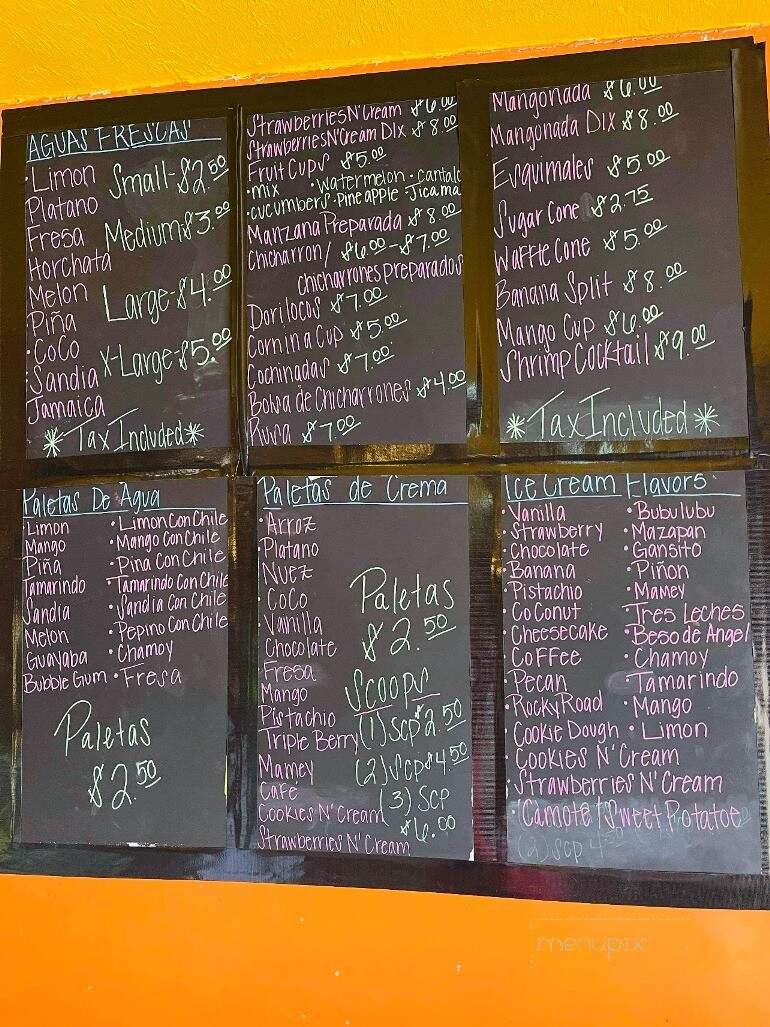 AGUAS FRESCAS
• Limon Small - $2.50
Platano
Fresa Medium $3.00
Horchata
Melon Large - $4.00
Piña
• CoCo X-Large - $5.00
• Sandia
Jamaica
* Tax Included *
Strawberries N' Cream $6.00
Strawberries N' Cream Dlx $8.00
Fruit Cups $5.00
• mix • Watermelon - cantalo
• cucumbers • Pineapple - Jicama
Manzana Preparada $8.00
Chicharron / $6.00 - $7.00
chicharrones preparados
Dorilocos $7.00
Corn in a Cup $5.00
Cochinadas $7.00
Bolsa de Chicharrones $4.00
Rusa $7.00
Mangonada $6.00
Mangonada Dlx $8.00
Esquimales $5.00
Sugar Cone $2.75
Waffle Cone $5.00
Banana Split $8.00
Mango Cup $6.00
Shrimp Cocktail $9.00
* Tax Included *
Paletas De Agua
Limon • Limon Con Chile
Mango • Mango Con Chile
Piña • Pina Con Chile
Tamarindo Tamarindo Con Chile
Sandia • Sandia Con Chile
Melon • Pepino Con Chile
Guayaba • Chamoy
Bubble Gum • Fresa
Paletas
$2.50
Paletas de Crema
• Arroz
Platano
Nuez
• CoCo
Vanilla
Chocolate
Fresa
Mango
Pistachio
Triple Berry
Mamey
Café
Cookies N' Cream
Strawberries N' Cream
Paletas
$2.50
Scoops
(1) Scp $2.50
(2) Scp $4.50
(3) Scp
$6.00
Ice Cream Flavors
• Vanilla • Bubulubu
• Strawberry • Mazapan
• Chocolate • Gansito
• Banana • Piñon
• Pistachio • Mamey
• CoConut Tres Leches
• Cheesecake • Beso de Angel
• Coffee • Chamoy
• Pecan Tamarindo
• Rocky Road • Mango
Cookie Dough • Limon
Cookies N' Cream
• Strawberries N' Cream
• Camote / Sweet Potatoe
(2) scp 4.50
menupix